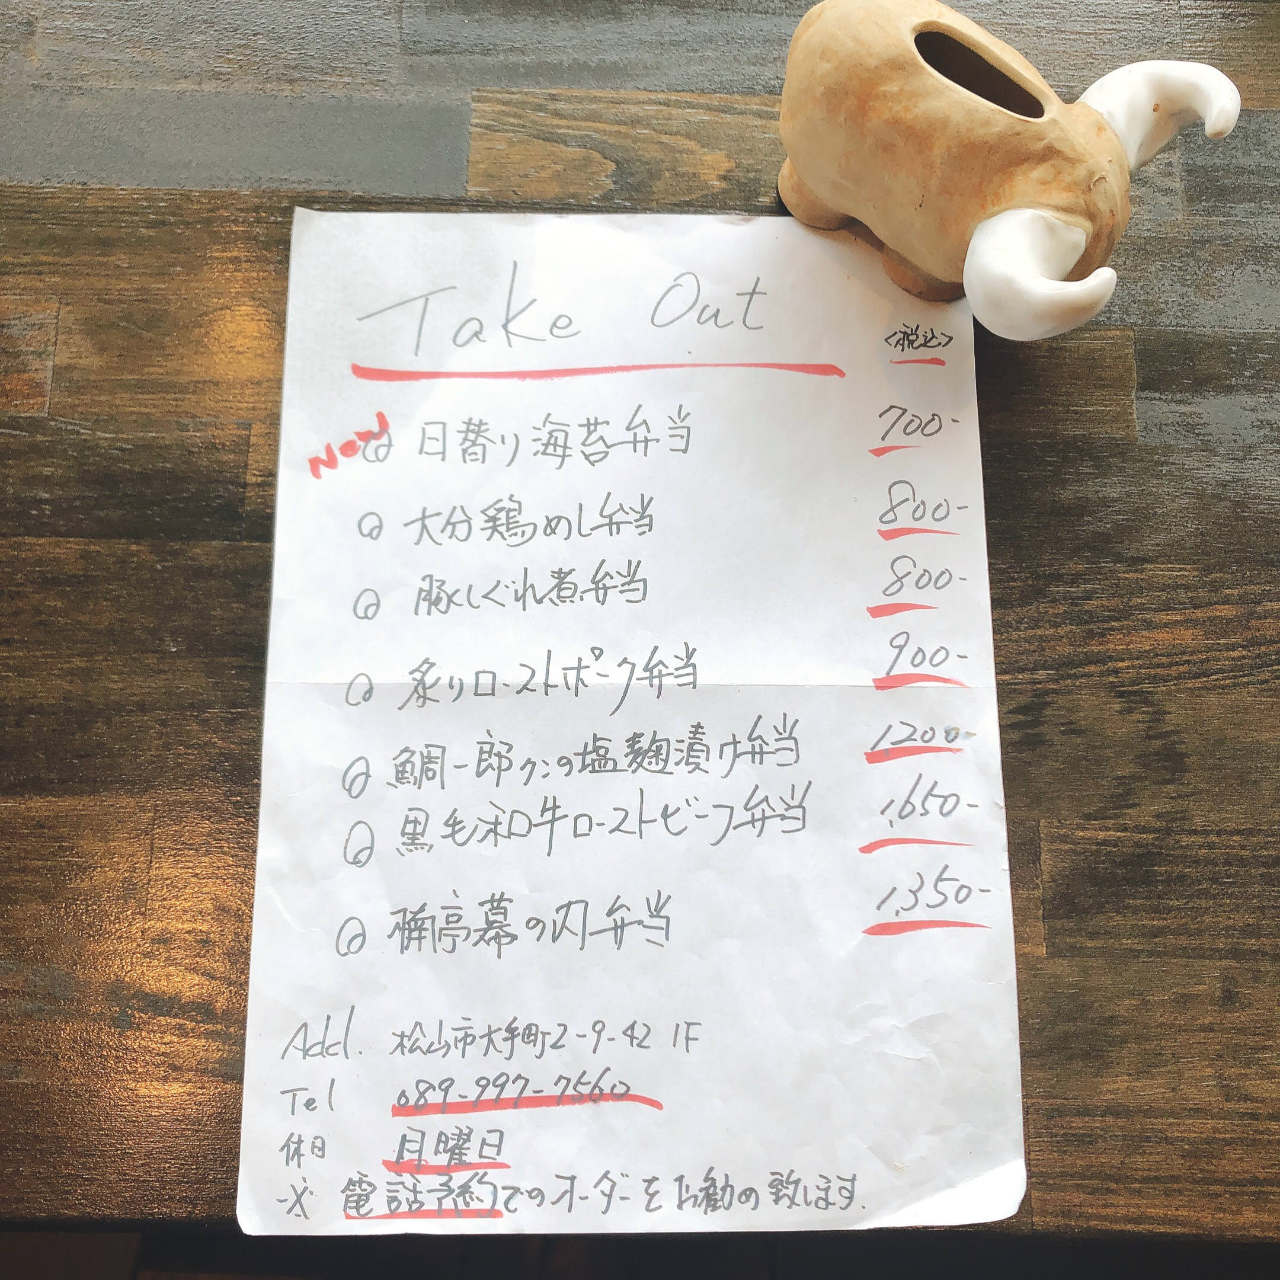 Take Out
<税込>
New 日替り海苔弁当 700-
大分鶏めし弁当 800-
豚しぐれ煮弁当 800-
炙りローストポーク弁当 900-
鯛一郎クンの塩麹漬け弁当 1200-
黒毛和牛ローストビーフ弁当 1,650-
亭幕の内弁当 1,350-
Add. 松山市大手町2-9-42 1F
Tel 089-997-7560
休日 月曜日
※ 電話予約でのオーダーをお勧め致します.